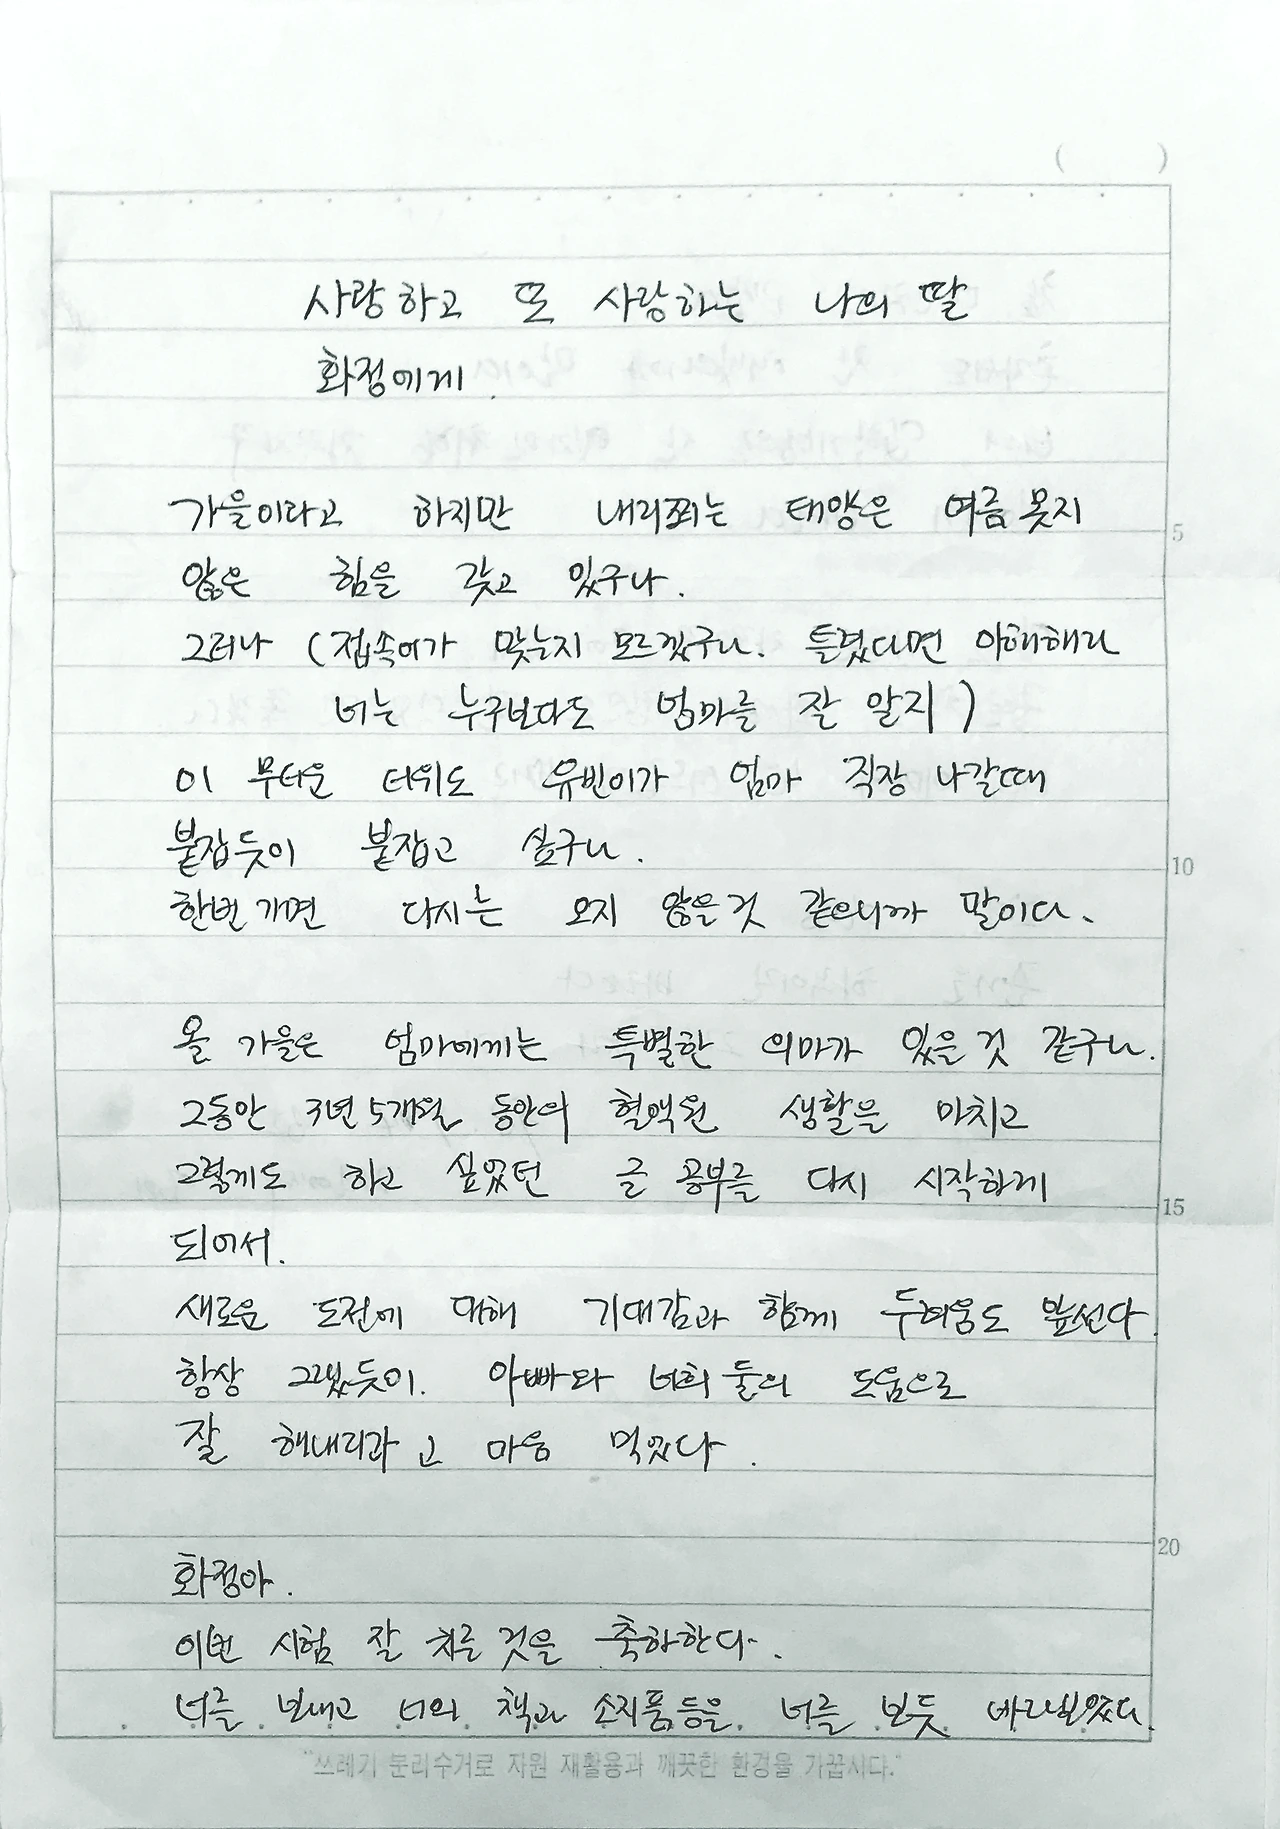 ( )
사랑하고 또 사랑하는 나의 딸
화정에게.
가을이라고 하지만 내리쬐는 태양은 여름 못지
5
않은 힘을 갖고 있구나.
그러나 (접속어가 맞는지 모르겠구나. 틀렸다면 이해해라
너는 누구보다도 엄마를 잘 알지)
이 무더운 더위도 유빈이가 엄마 직장 나갈때
붙잡듯이 붙잡고 싶구나.
10
한번 가면 다시는 오지 않을것 같으니까 말이다.
올 가을은 엄마에게는 특별한 의미가 있을것 같구나.
그동안 3년 5개월 동안의 혈액원 생활을 마치고
그렇게도 하고 싶었던 글 공부를 다시 시작하게
15
되어서.
새로운 도전에 대해 기대감과 함께 두려움도 앞선다.
항상 그랬듯이. 아빠와 너희 둘의 도움으로
잘 해내리라고 마음 먹었다.
20
화정아.
이번 시험 잘 치른 것을 축하한다.
너를 보내고 너의 책과 소지품등을 너를 보듯 바라보았다.
"쓰레기 분리수거로 자원 재활용과 깨끗한 환경을 가꿉시다."